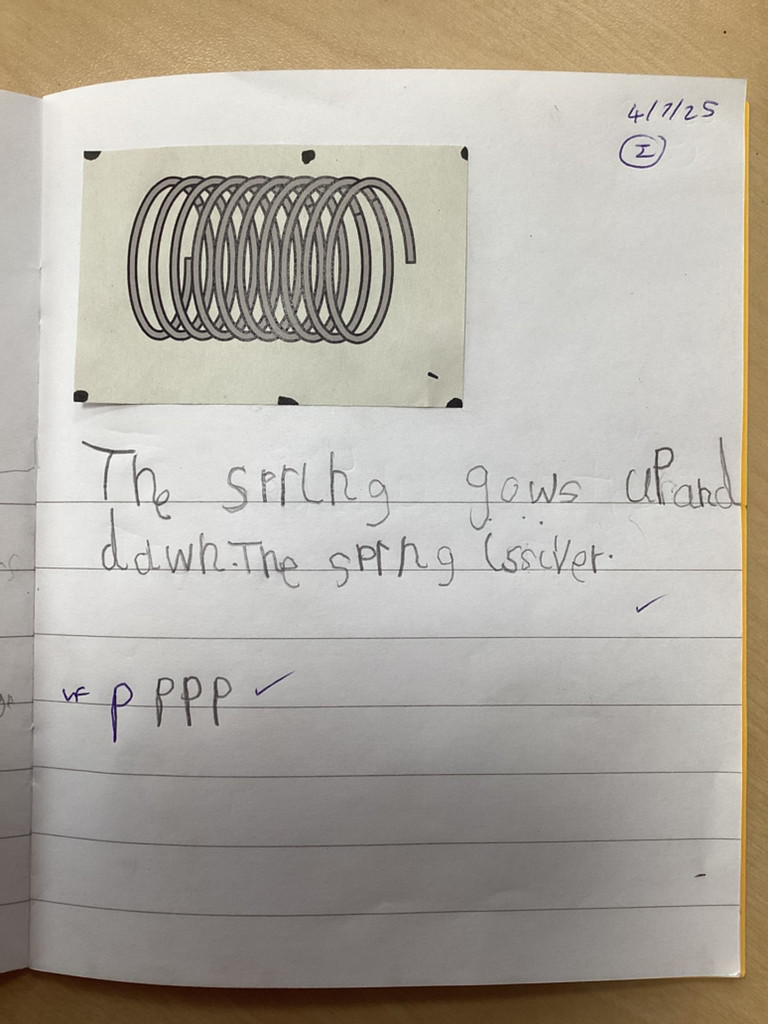 4/7/25
I
The spring gows uP and
down. The spring issilver.
VF p ppp